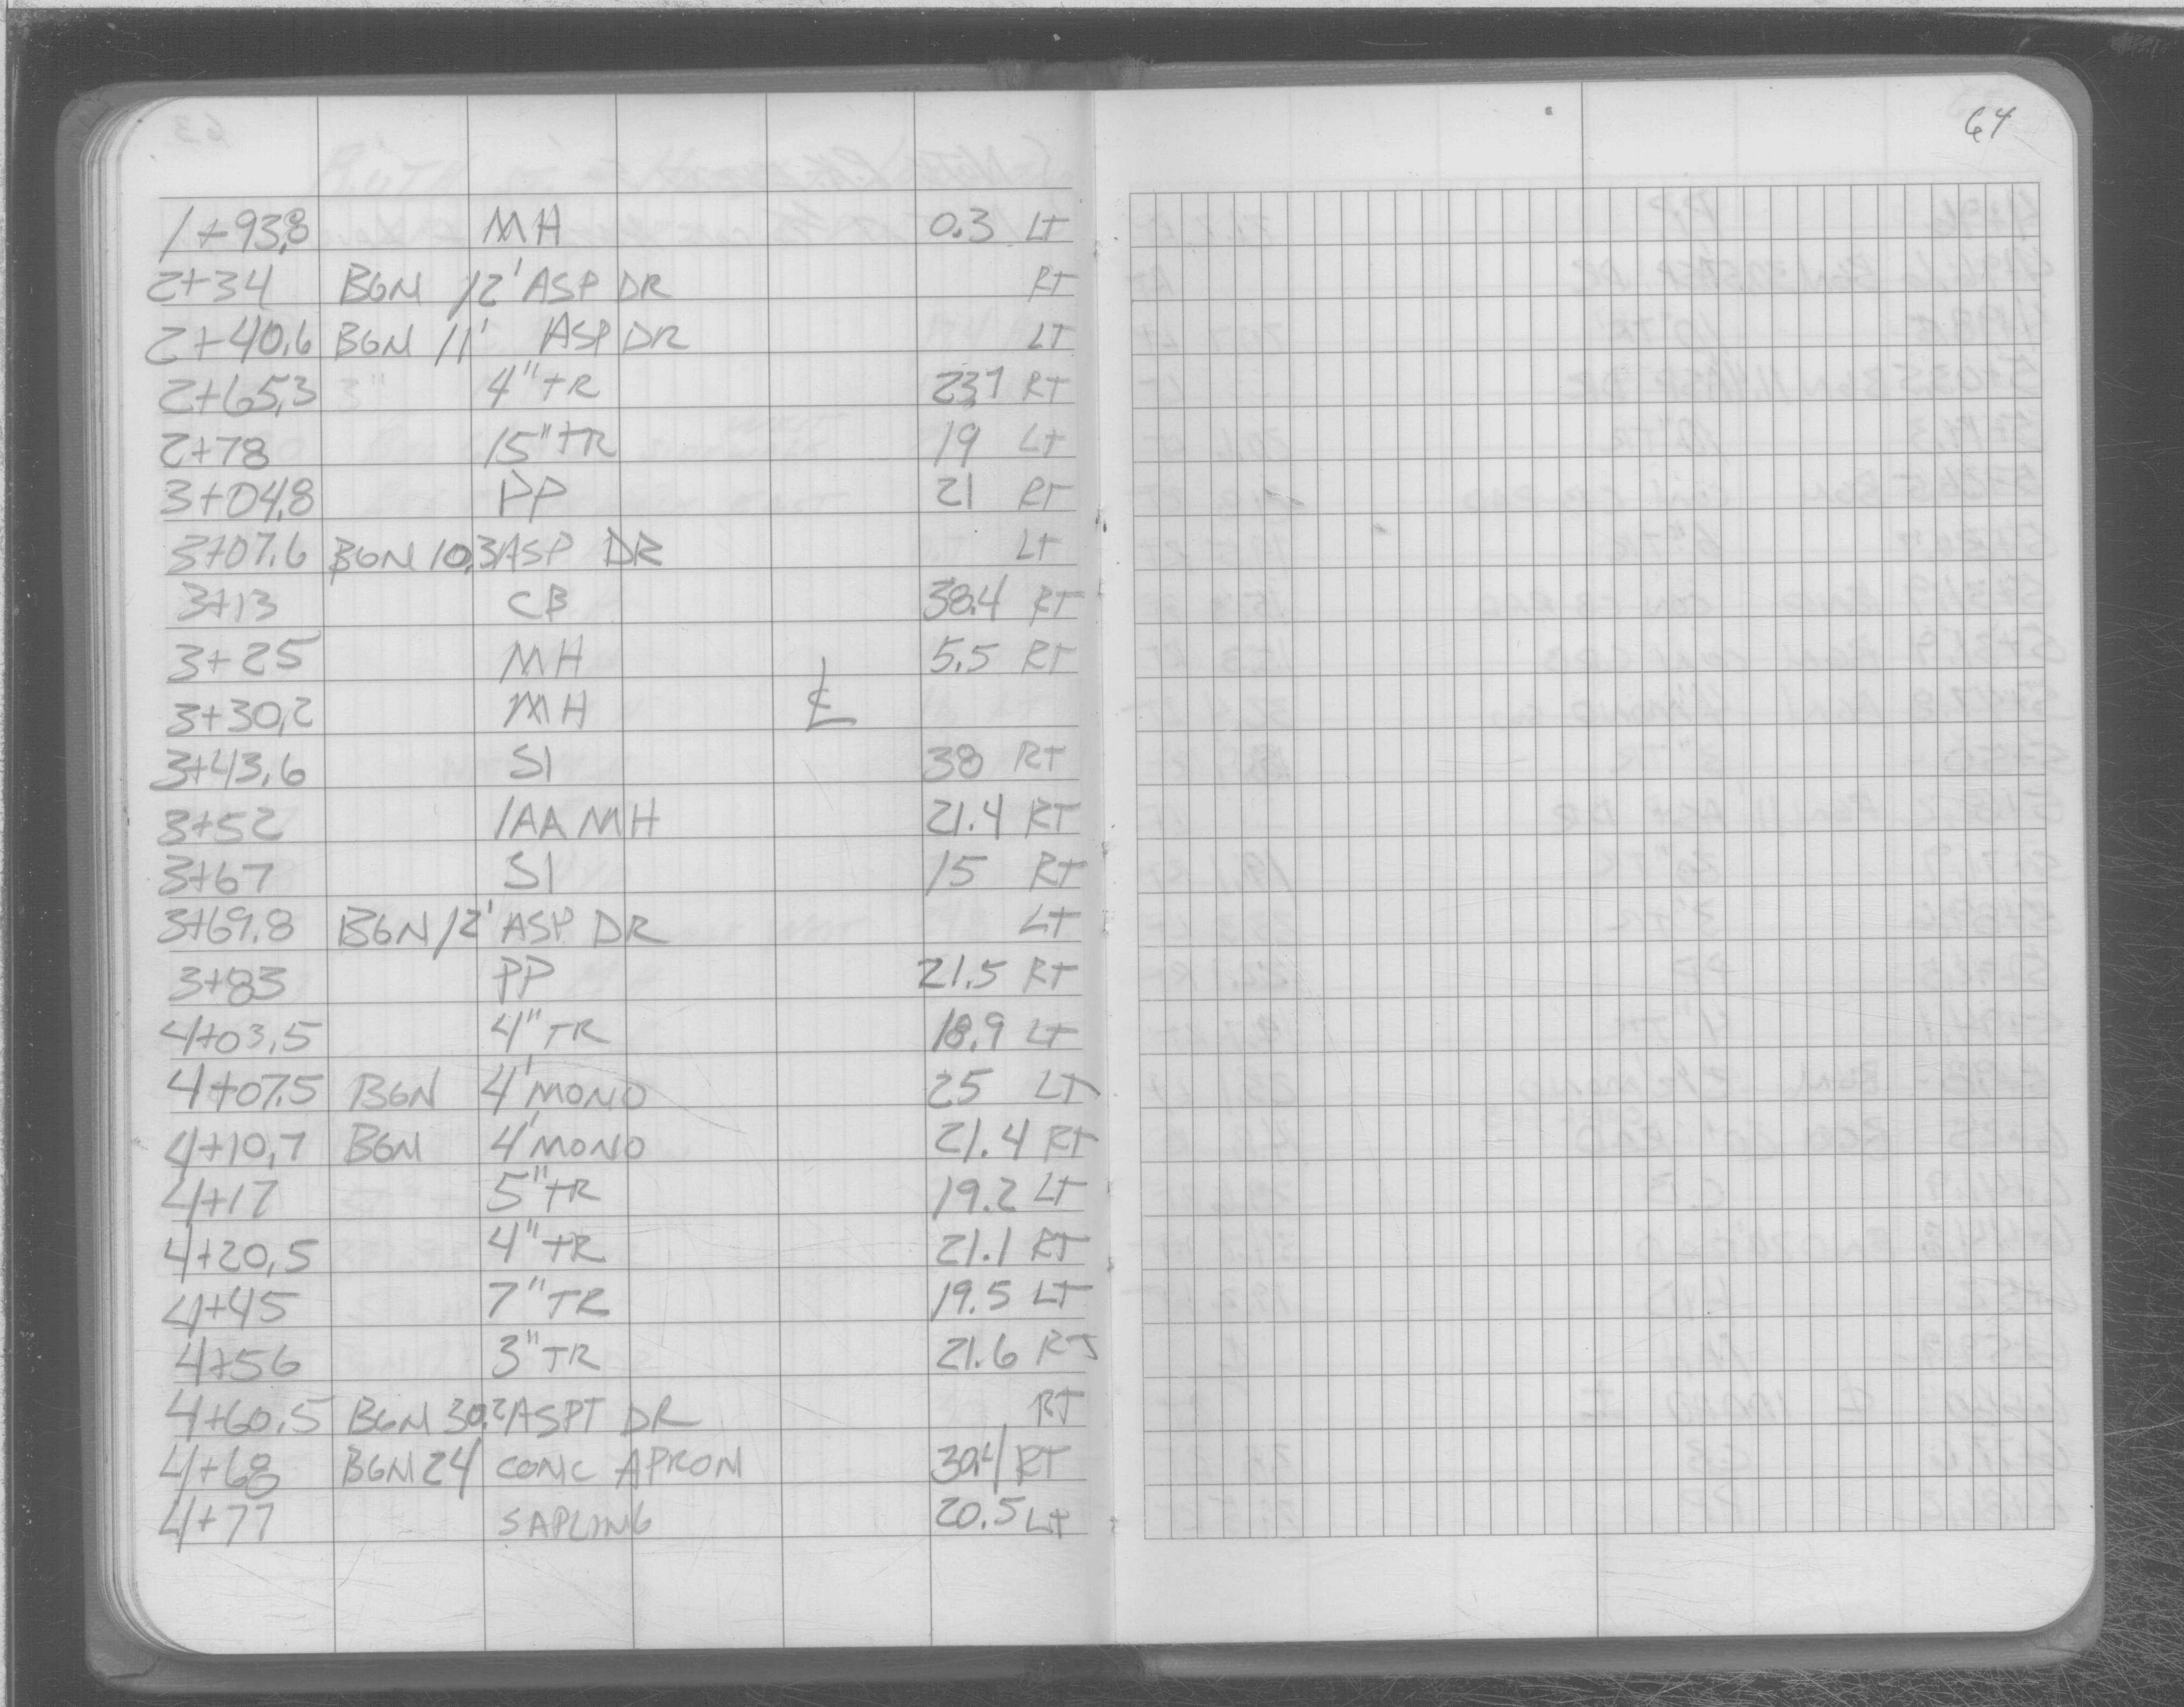 64
1+93.8 MH 0.3 LT
2+34 BGN 12' ASP DR RT
2+40.6 BGN 11' ASP DR LT
2+65.3 4" TR 23.1 RT
2+78 15" TR 19 LT
3+04.8 PP 21 RT
3+07.6 BGN 10.3 ASP DR LT
3+13 CB 38.4 RT
3+25 MH 5.5 RT
3+30.2 MH ℄
3+43.6 SI 38 RT
3+52 IAA MH 21.4 RT
3+67 SI 15 RT
3+69.8 BGN 12' ASP DR LT
3+83 PP 21.5 RT
4+03.5 4" TR 18.9 LT
4+07.5 BGN 4' MONO 25 LT
4+10.7 BGN 4' MONO 21.4 RT
4+17 5" TR 19.2 LT
4+20.5 4" TR 21.1 RT
4+45 7" TR 19.5 LT
4+56 3" TR 21.6 RT
4+60.5 BGN 30.2 ASPT DR RT
4+68 BGN 24 CONC APRON 30.4 RT
4+77 SAPLING 20.5 LT